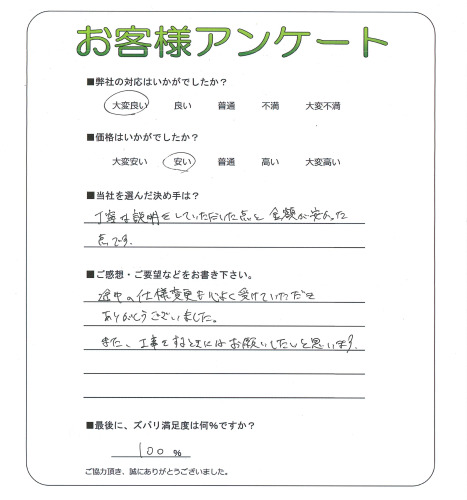 お客様アンケート
■弊社の対応はいかがでしたか？
大変良い 良い 普通 不満 大変不満
■価格はいかがでしたか？
大変安い 安い 普通 高い 大変高い
■当社を選んだ決め手は？
丁寧な説明をしていただした点と金額が安かった
点です.
■ご感想・ご要望などをお書き下さい。
途中の仕様変更も心よく受けていただき
ありがとうございました。
また、工事をするときにはお願いしたいと思います.
■最後に、ズバリ満足度は何%ですか？
100 %
ご協力頂き、誠にありがとうございました。